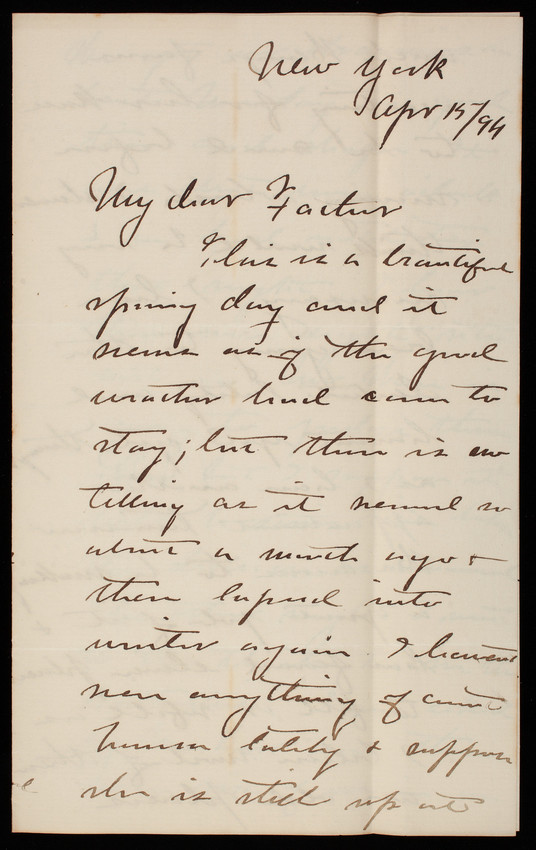 New York
Apr 15/94
My dear Father
This is a beautiful
spring day and it
seems as if the good
weather had come to
stay; but there is no
telling as it seemed so
about a month ago &
then lapsed into
winter again. I havent
seen anything of aunt
lately & suppose
she is still up at